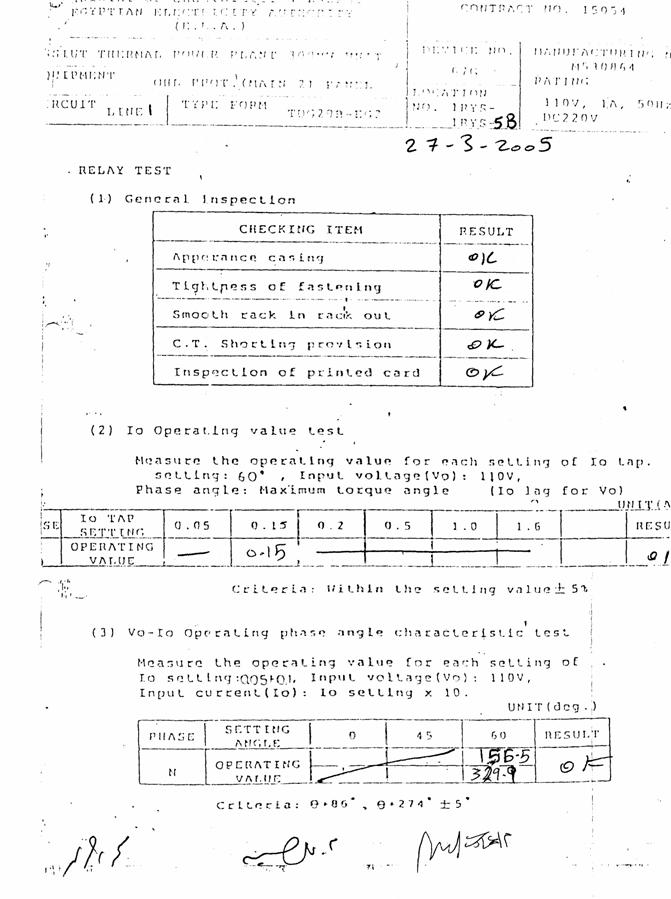 EGYPTIAN ELECTRICITY AUTHORITY
(E.E.A.)
CONTRACT NO. 15054
THERMAL POWER PLANT UNIT
DEVICE NO.
67G
MANUFACTURING
M530864
PROT.(MAIN 2) PANEL
LOCATION
NO. 1RYS-
1RYS-5B
RATING
110V, 1A, 50Hz
DC220V
LINE 1
TYPE FORM
27-3-2005
RELAY TEST
(1) General Inspection
CHECKING ITEM RESULT
Apperance casing OK
Tightness of fastening OK
Smooth rack in rack out OK
C.T. Shorting provision OK
Inspection of printed card OK
(2) Io Operating value test
Measure the operating value for each setting of Io tap.
setting: 60° , Input voltage(Vo): 110V,
Phase angle: Maximum torque angle (Io lag for Vo)
IO TAP SETTING 0.05 0.15 0.2 0.5 1.0 1.6
OPERATING VALUE — 0.15 —
Criteria: Within the setting value ± 5%
(3) Vo-Io Operating phase angle characteristic test
Measure the operating value for each setting of
Io setting: Input voltage(Vo): 110V,
Input current(Io): Io setting x 10.
UNIT(deg.)
PHASE SETTING ANGLE 0 45 60 RESULT
N OPERATING VALUE 156.5 OK
329.9
Criteria: θ+86°, θ+274° ±5°